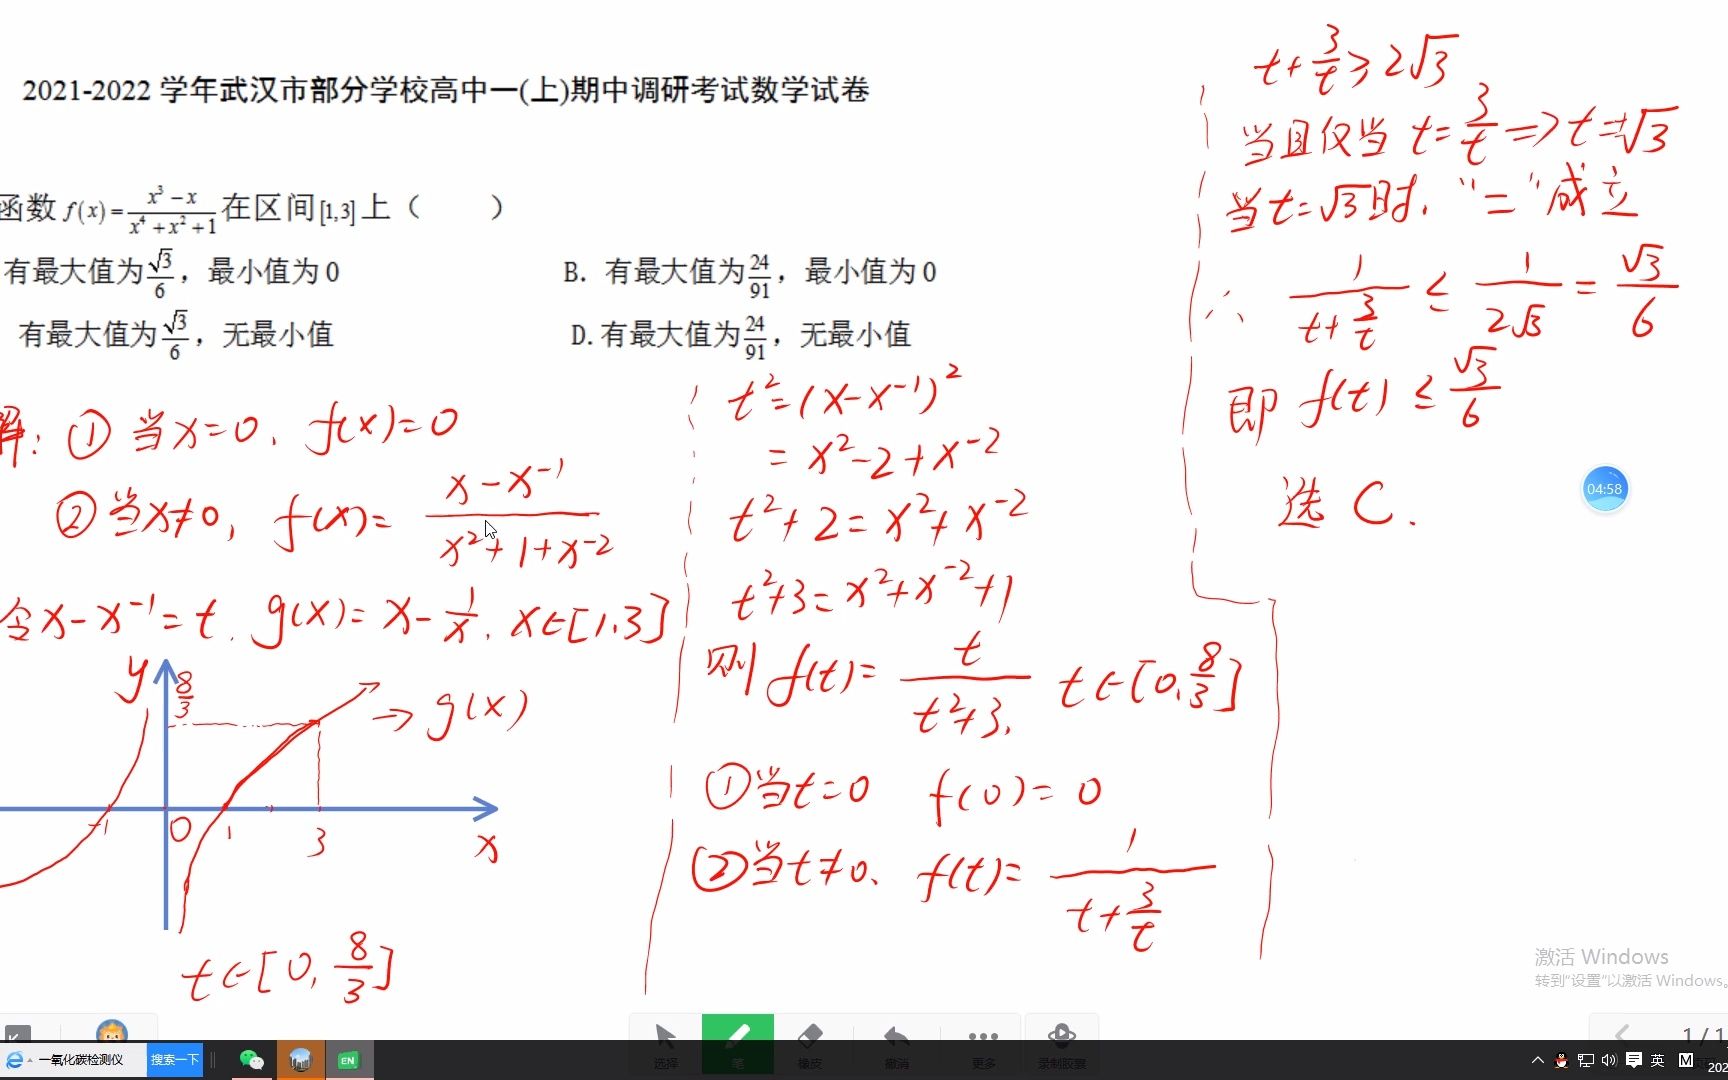 2021-2022 学年武汉市部分学校高中一(上)期中调研考试数学试卷
函数 f(x)=\frac{x³-x}{x⁴+x²+1} 在区间[1,3]上（　　）
有最大值为\frac{√3}{6}，最小值为 0
B. 有最大值为\frac{24}{91}，最小值为 0
有最大值为\frac{√3}{6}，无最小值
D.有最大值为\frac{24}{91}，无最小值
解: ① 当x=0, f(x)=0
② 当x≠0, f(x)=\frac{x-x⁻¹}{x²+1+x⁻²}
令x-x⁻¹=t. g(x)=x-\frac{1}{x}. x∈[1.3]
y
\frac{8}{3}
→ g(x)
-1 0 1 3 x
t∈[0,\frac{8}{3}]
t²=(x-x⁻¹)²
=x²-2+x⁻²
t²+2=x²+x⁻²
t²+3=x²+x⁻²+1
则f(t)=\frac{t}{t²+3}. t∈[0.\frac{8}{3}]
①当t=0 f(0)=0
②当t≠0、f(t)=\frac{1}{t+\frac{3}{t}}
t+\frac{3}{t}≥2√3
当且仅当 t=\frac{3}{t}⇒t=±√3
当t=√3时. "="成立
∴ \frac{1}{t+\frac{3}{t}}≤\frac{1}{2√3}=\frac{√3}{6}
即 f(t)≤\frac{√3}{6}
选 C.
04:58
激活 Windows
转到"设置"以激活 Windows。
选择 笔 橡皮 撤消 更多 录制胶囊
1 / 1
一氧化碳检测仪 搜索一下
EN
英 M
202